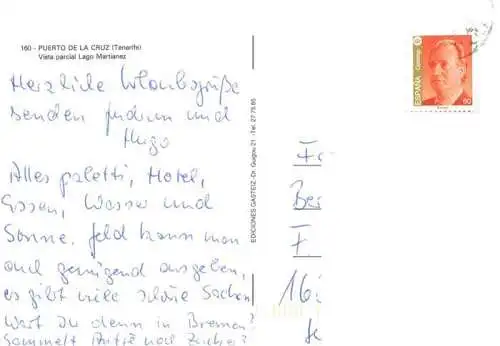 160 - PUERTO DE LA CRUZ (Tenerife)
Vista parcial Lago Martianez
Herzliche Urlaubsgrüße
senden und
Hugo
Alles paletti, Hotel,
Essen, Wasser und
Sonne. Geld kann man
auch genügend ausgeben,
es gibt viele schöne Sachen
Warst Du denn in Bremen?
Sammelt noch Zucker?
EDICIONES GASTEIZ-Dr. Guigou 21 -Tel. 27 75 85
ESPAÑA
Correos
60
F
Ber
F.
16